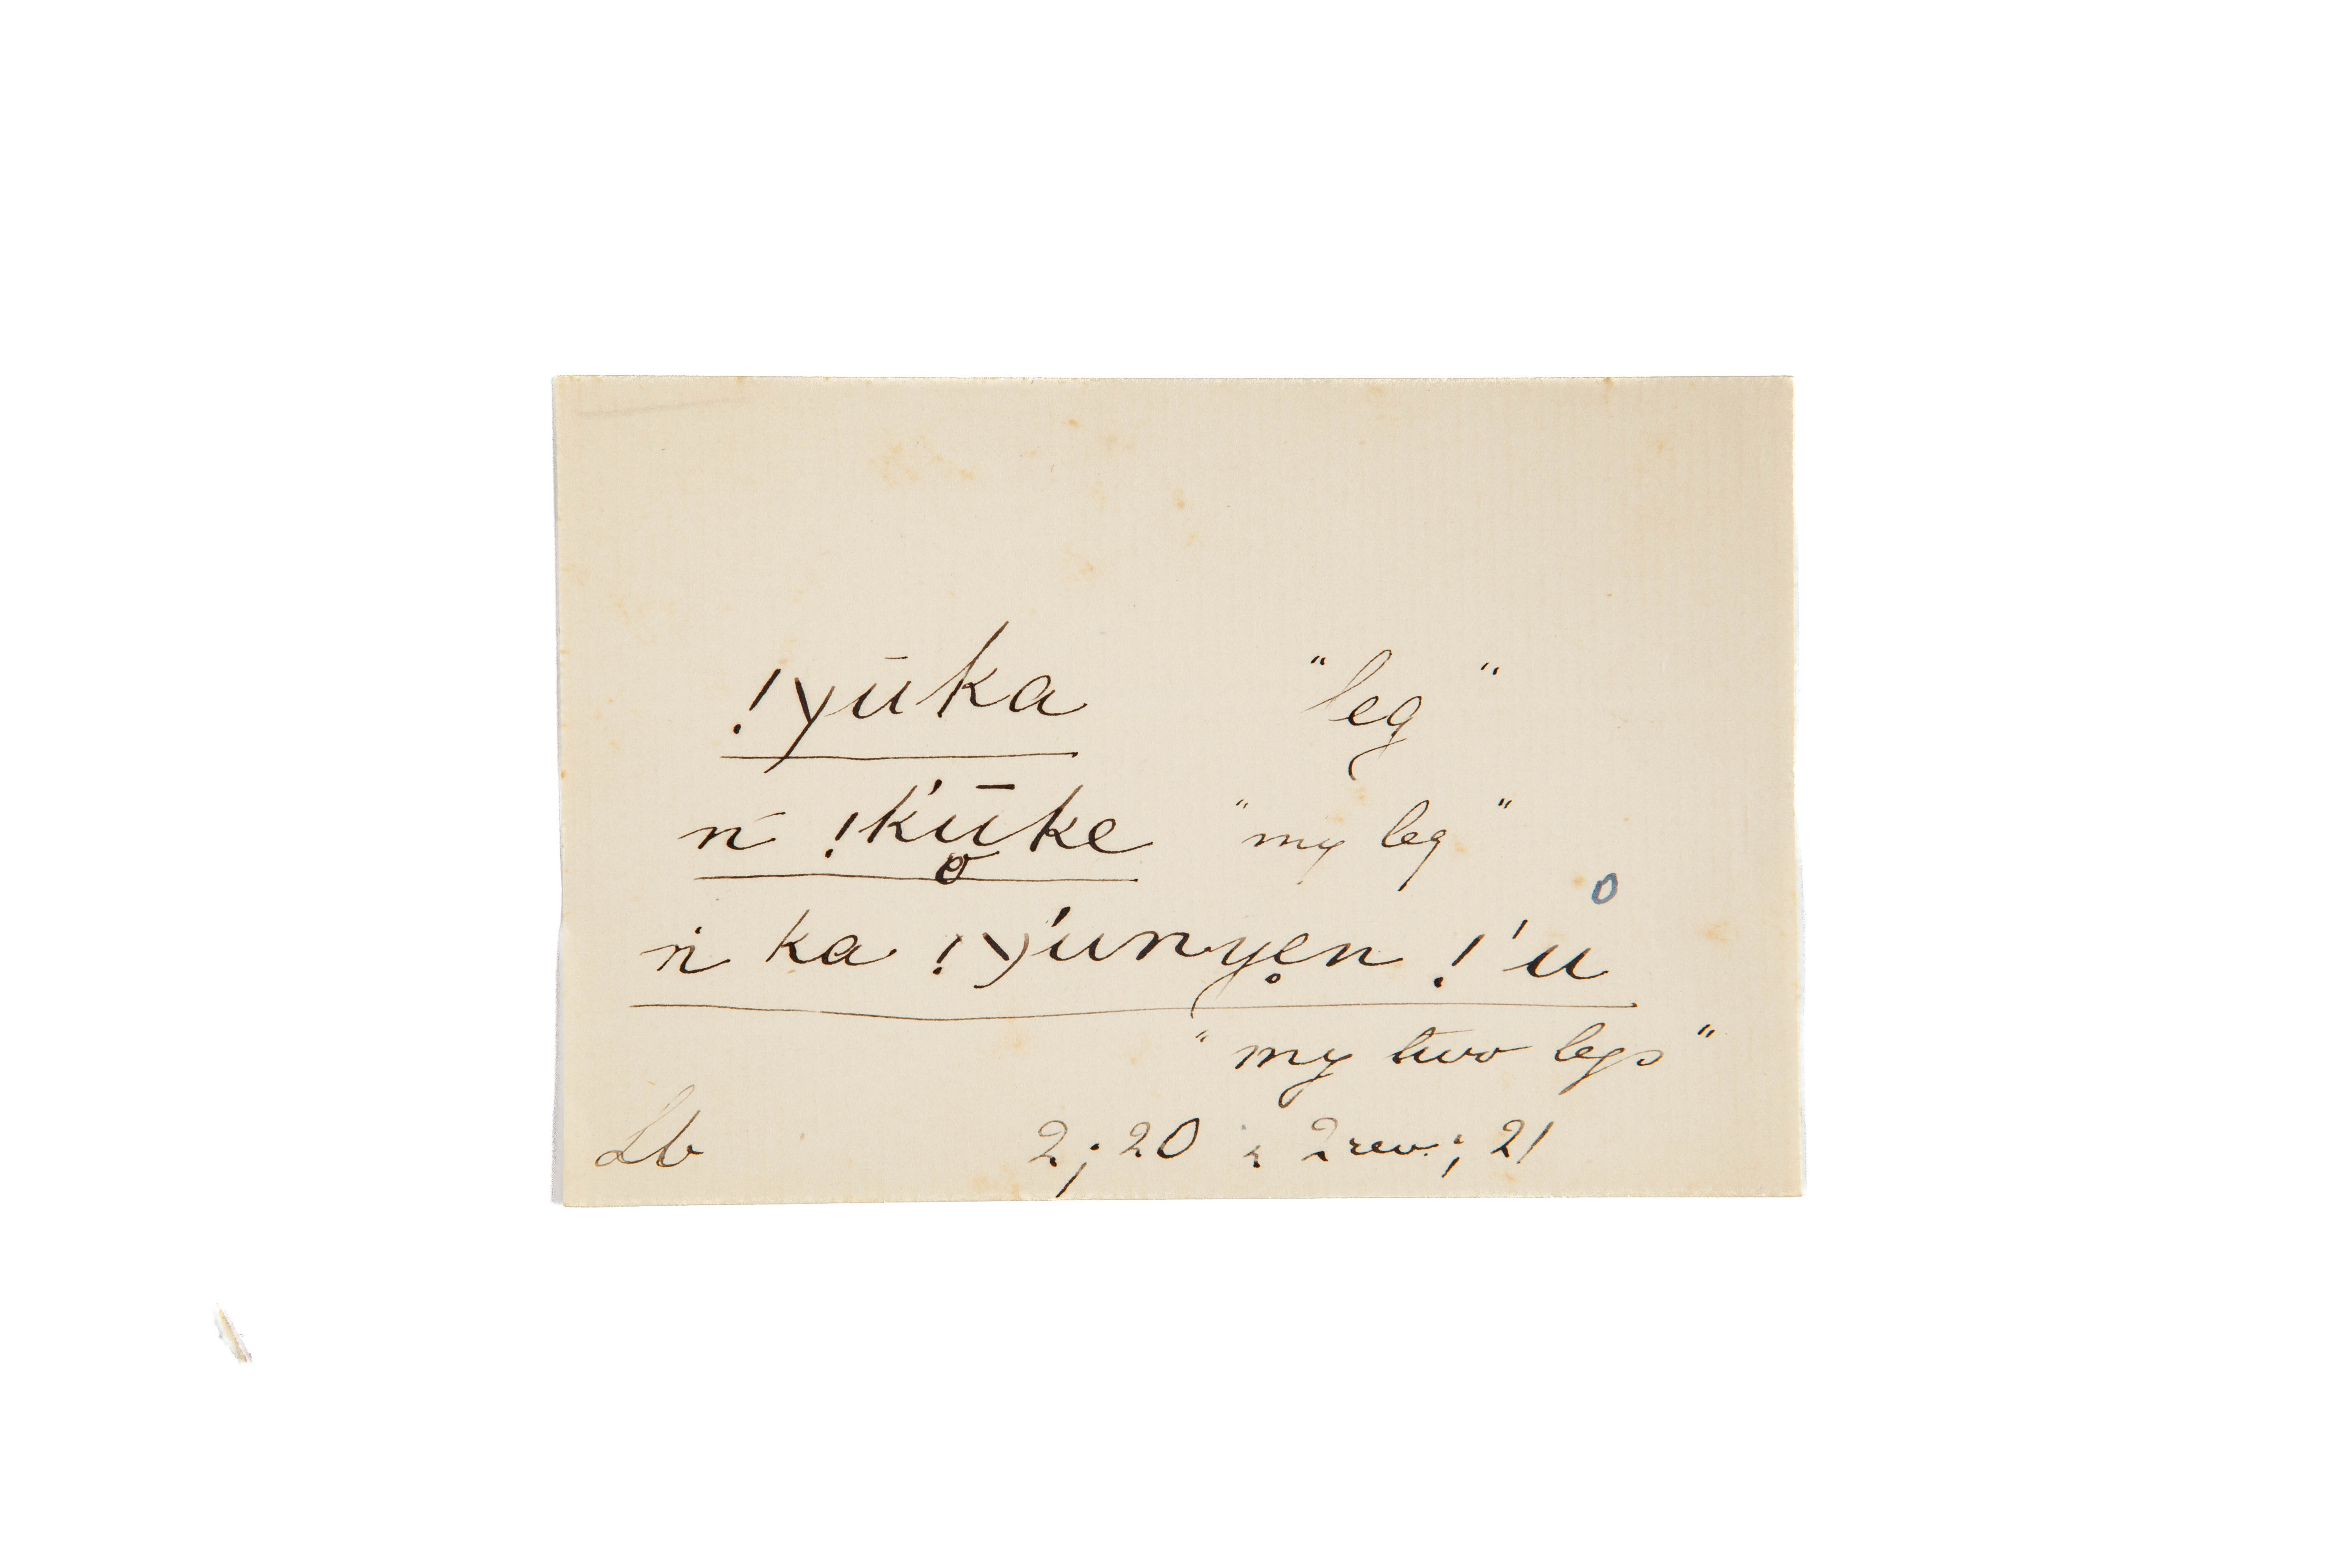 !χūka "leg"
ń !k'ūke "my leg"
o
ṅ ka !χ'unyẹn !'u
"my two legs"
Lb 2; 20 & 2 rev.; 21